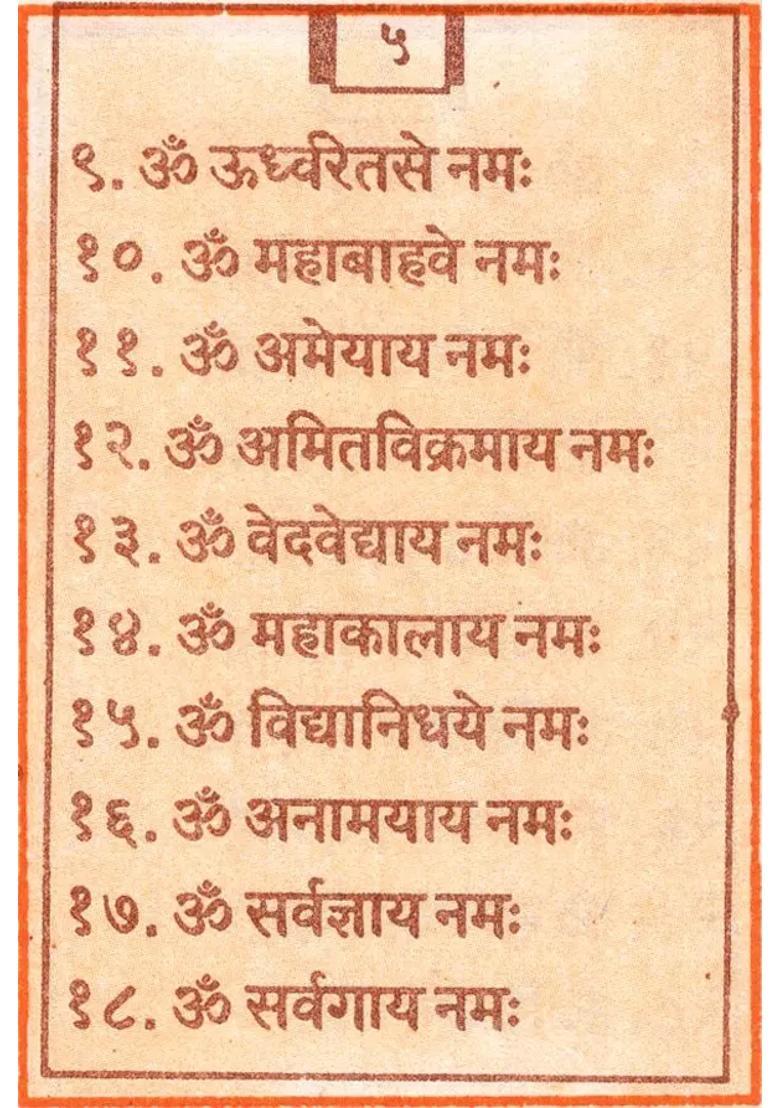 ५
९. ॐ ऊर्ध्वरेतसे नमः
१०. ॐ महाबाहवे नमः
११. ॐ अमेयाय नमः
१२. ॐ अमितविक्रमाय नमः
१३. ॐ वेदवेद्याय नमः
१४. ॐ महाकालाय नमः
१५. ॐ विद्यानिधये नमः
१६. ॐ अनामयाय नमः
१७. ॐ सर्वज्ञाय नमः
१८. ॐ सर्वगाय नमः